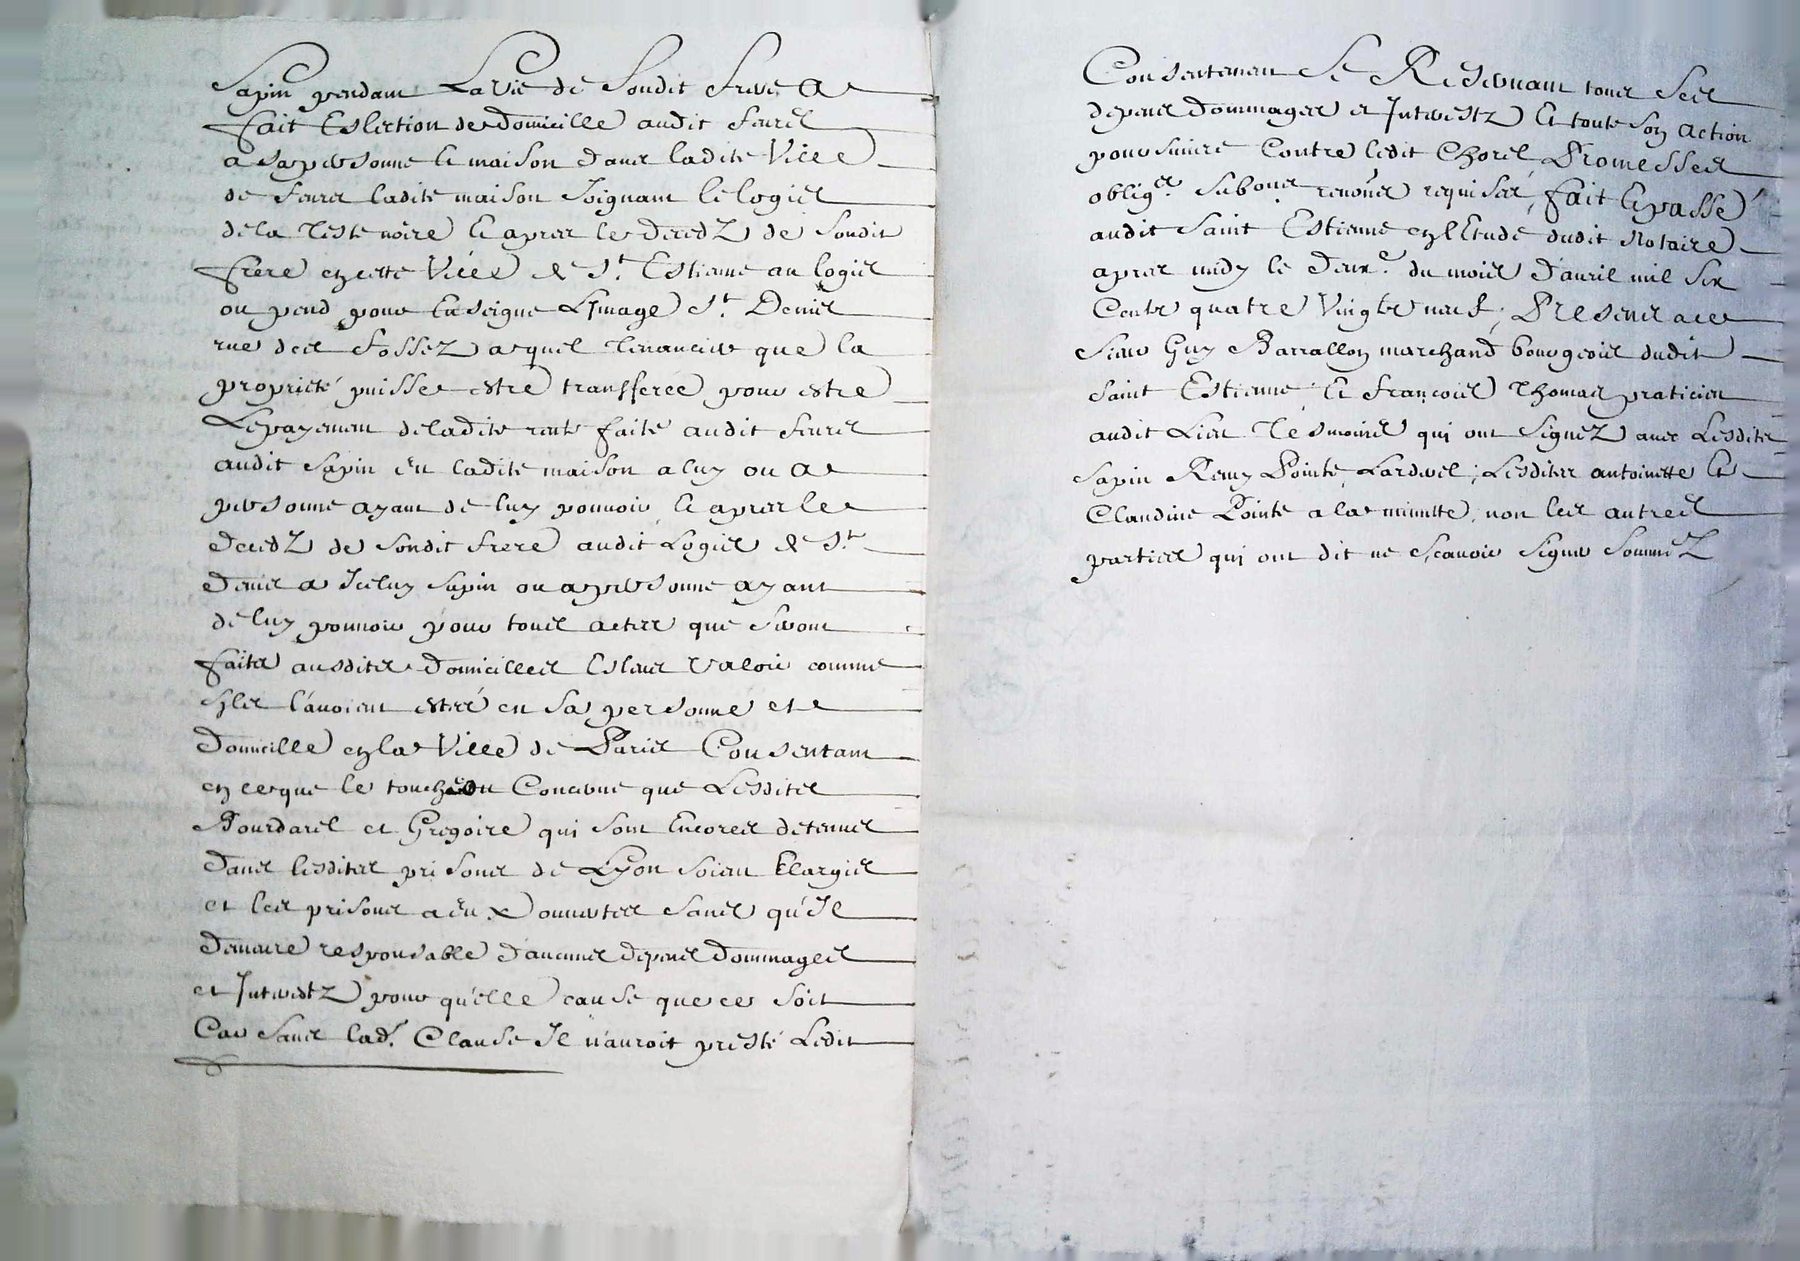 Sapin pendant La vie de Sondit frere a
fait Eslection de domicille audit feurs
a sa personne et maison dans ladite Ville
de feurs ladite maison Joignant le logis
de la Teste noire et apres le deceds de sondit
frere en cette Ville de St. Estienne au logis
ou pend pour Enseigne L'Jmage St. Denis
rue des Fossez avquel tenancier que la
proprieté puisse estre transferée pour estre
Le payement de ladite rente faite audit feurs
audit sapin en ladite maison a luy ou a
personne ayant de luy pouvoir et apres le
decedz de sondit frere audit Logis de St.
Denis a Jceluy sapin ou a personne ayant
de luy pouvoir pour tous actes que seront
faits ausdites domicilles Esleus valoir comme
s'jls l'avoient estés en sa personne et
domicille en la Ville de Paris Consentant
en ce que le touche ou Concerne que Lesdites
Bourdarel et Gregoire qui sont Encores detenus
dans lesdites prisons de Lyon soient Elargies
et les prisons a eux ouvertes sans qu'Jl
demeure responsable d'aucuns depens dommages
et Jnterestz pour qu'elle cause que ce soit
Car sans lade. Clause Jl n'auroit presté Ledit
Consentement Se Reservant tous Ses
depens dommages et Jnterestz et toute son action
pour suivre Contre ledit Chorel Promesses
obliger. Subons. renoner requises, fait et passé
audit Saint Estienne en l'Etude dudit Notaire
apres midy le deuxe. du mois d'auril mil six
Cents quatre Vingts neuf; Presens a ce
Sieur Guy Barrallon marchand bourgeois dudit
saint Estienne et françois Thomas praticien
audit Lieu Tesmoins qui ont Signez avec Lesdits
sapin Remy Pointe Lardwel; Lesdites antoinette et
Claudine Pointe a la minutte, non les autres
parties qui ont dit ne Scavoir Signer Sommez